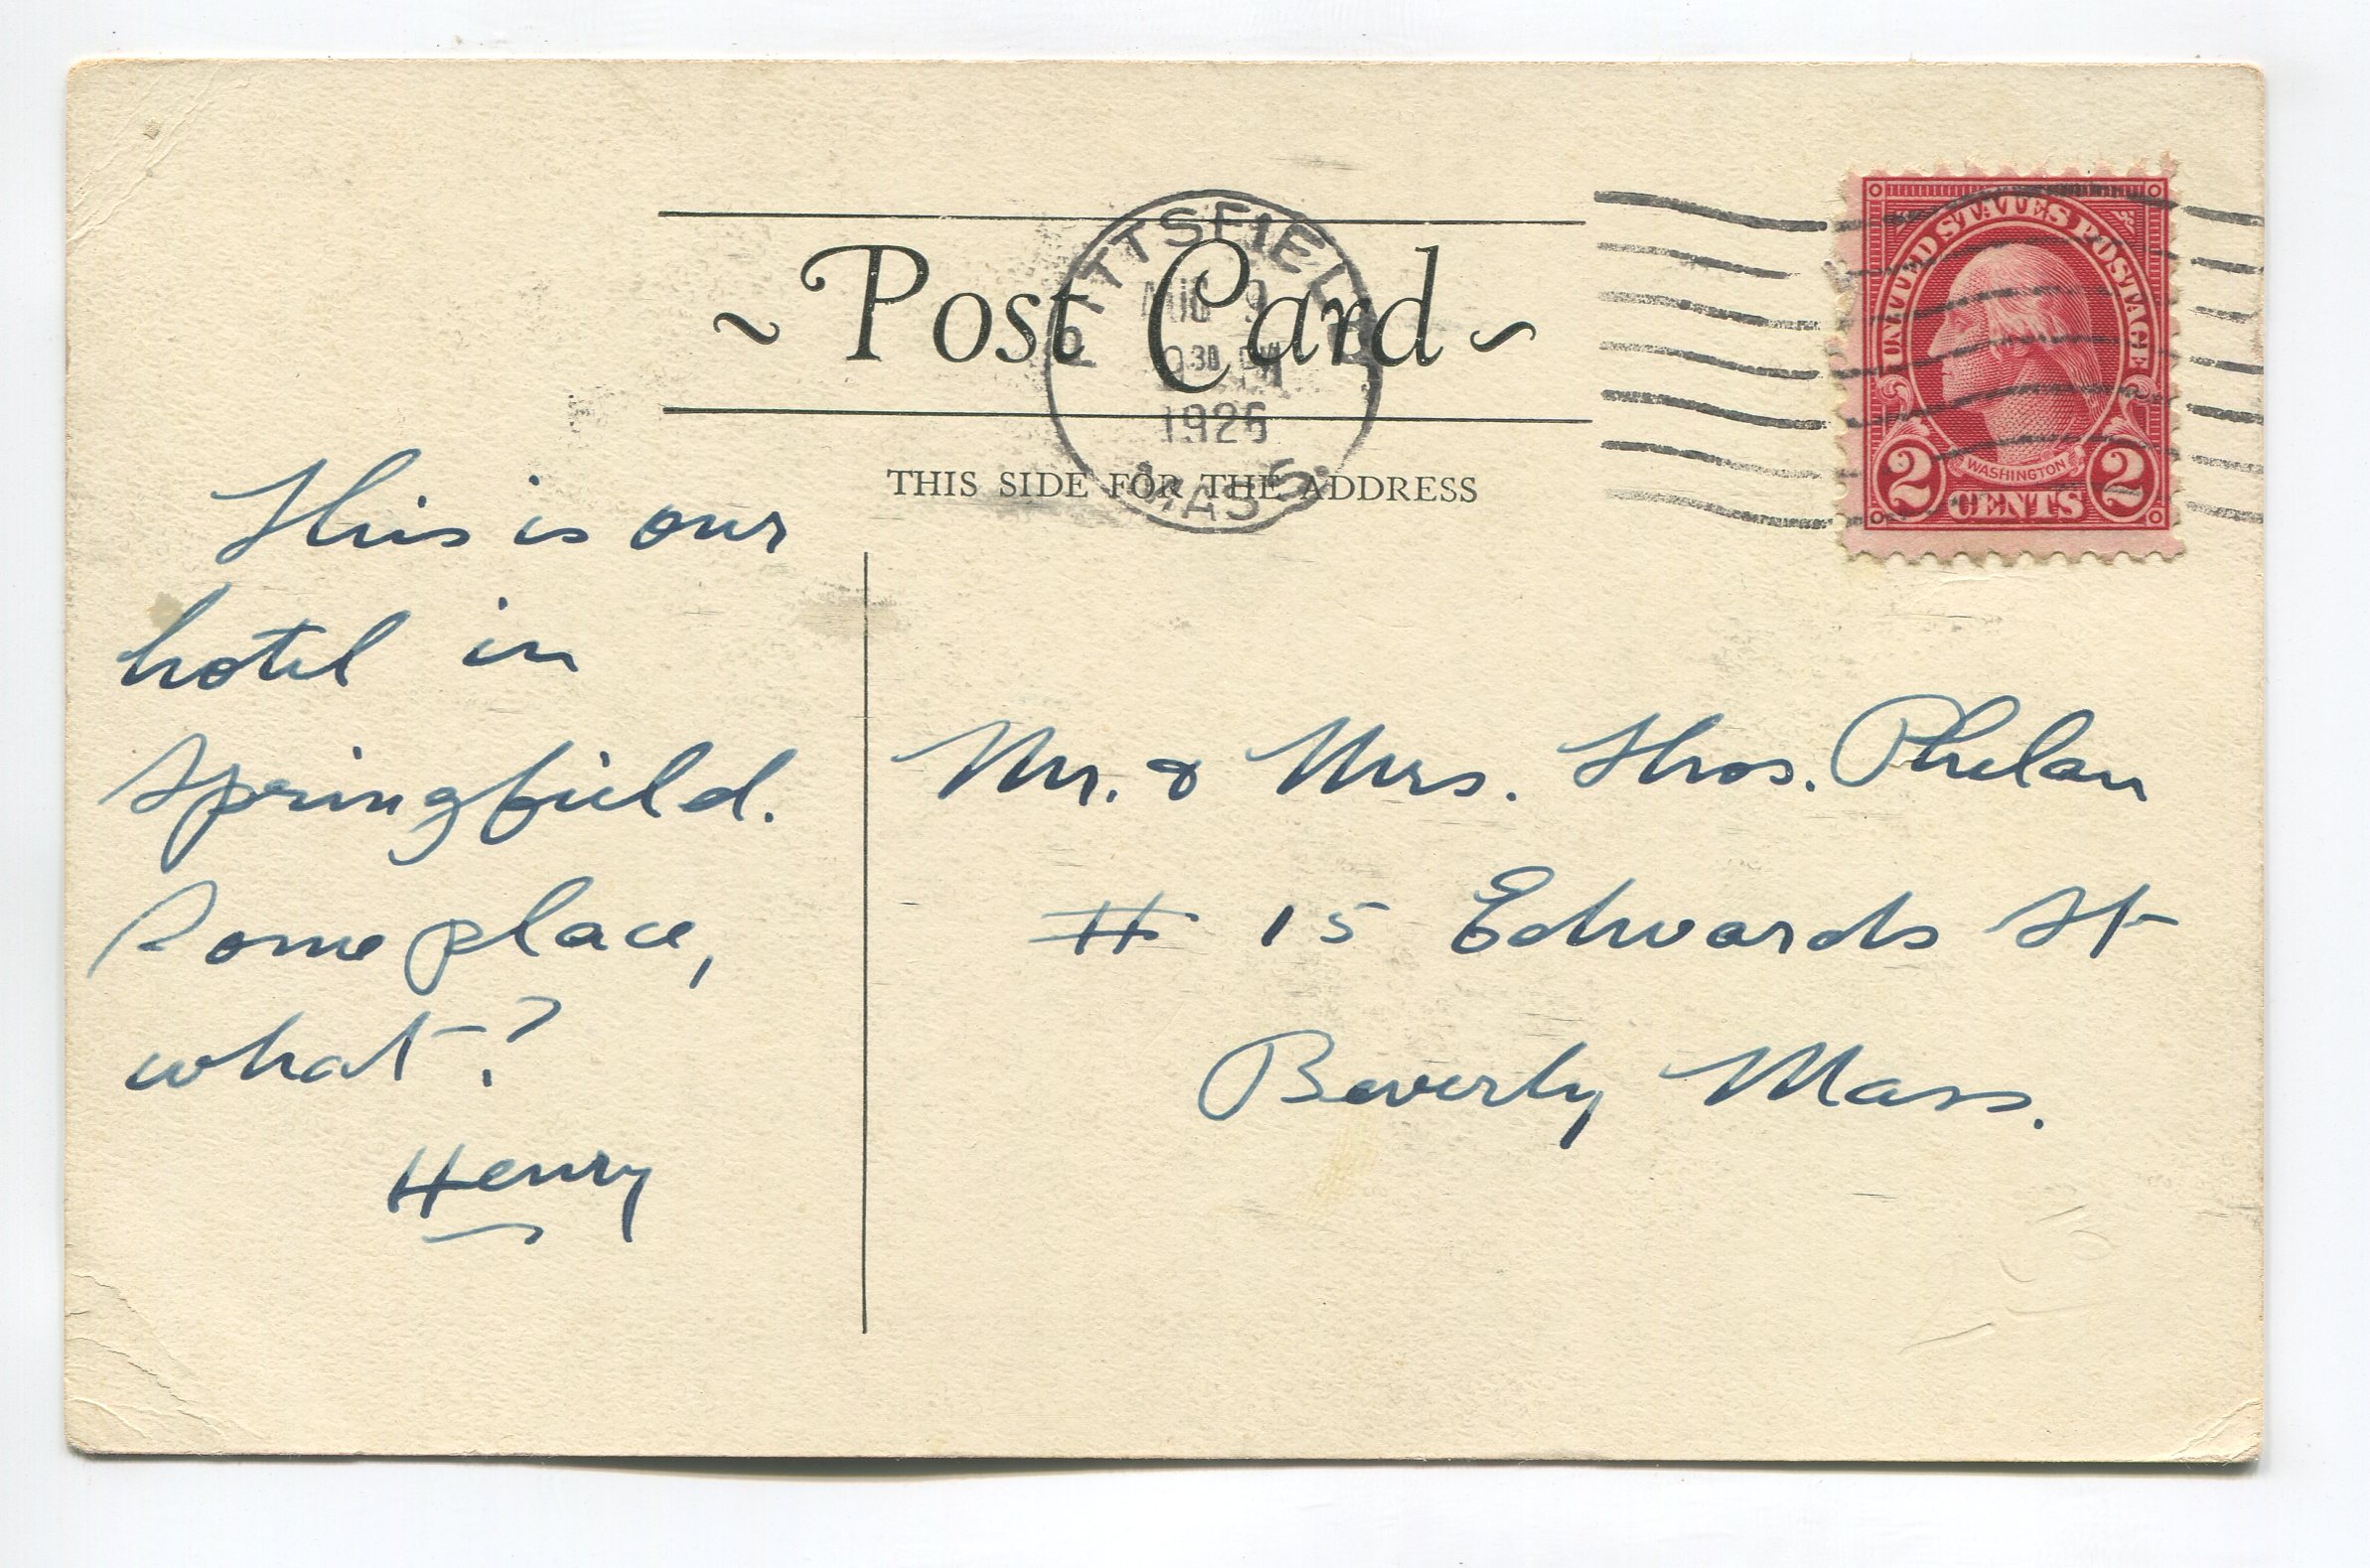 ~ Post Card ~
PITTSFIELD
AUG 9
9 30 PM
1926
MASS.
UNITED STATES POSTAGE
WASHINGTON
2 CENTS 2
THIS SIDE FOR THE ADDRESS
This is our
hotel in
Springfield.
Some place,
what?
Henry
Mr. & Mrs. Thos. Phelan
# 15 Edwards St
Beverly Mass.